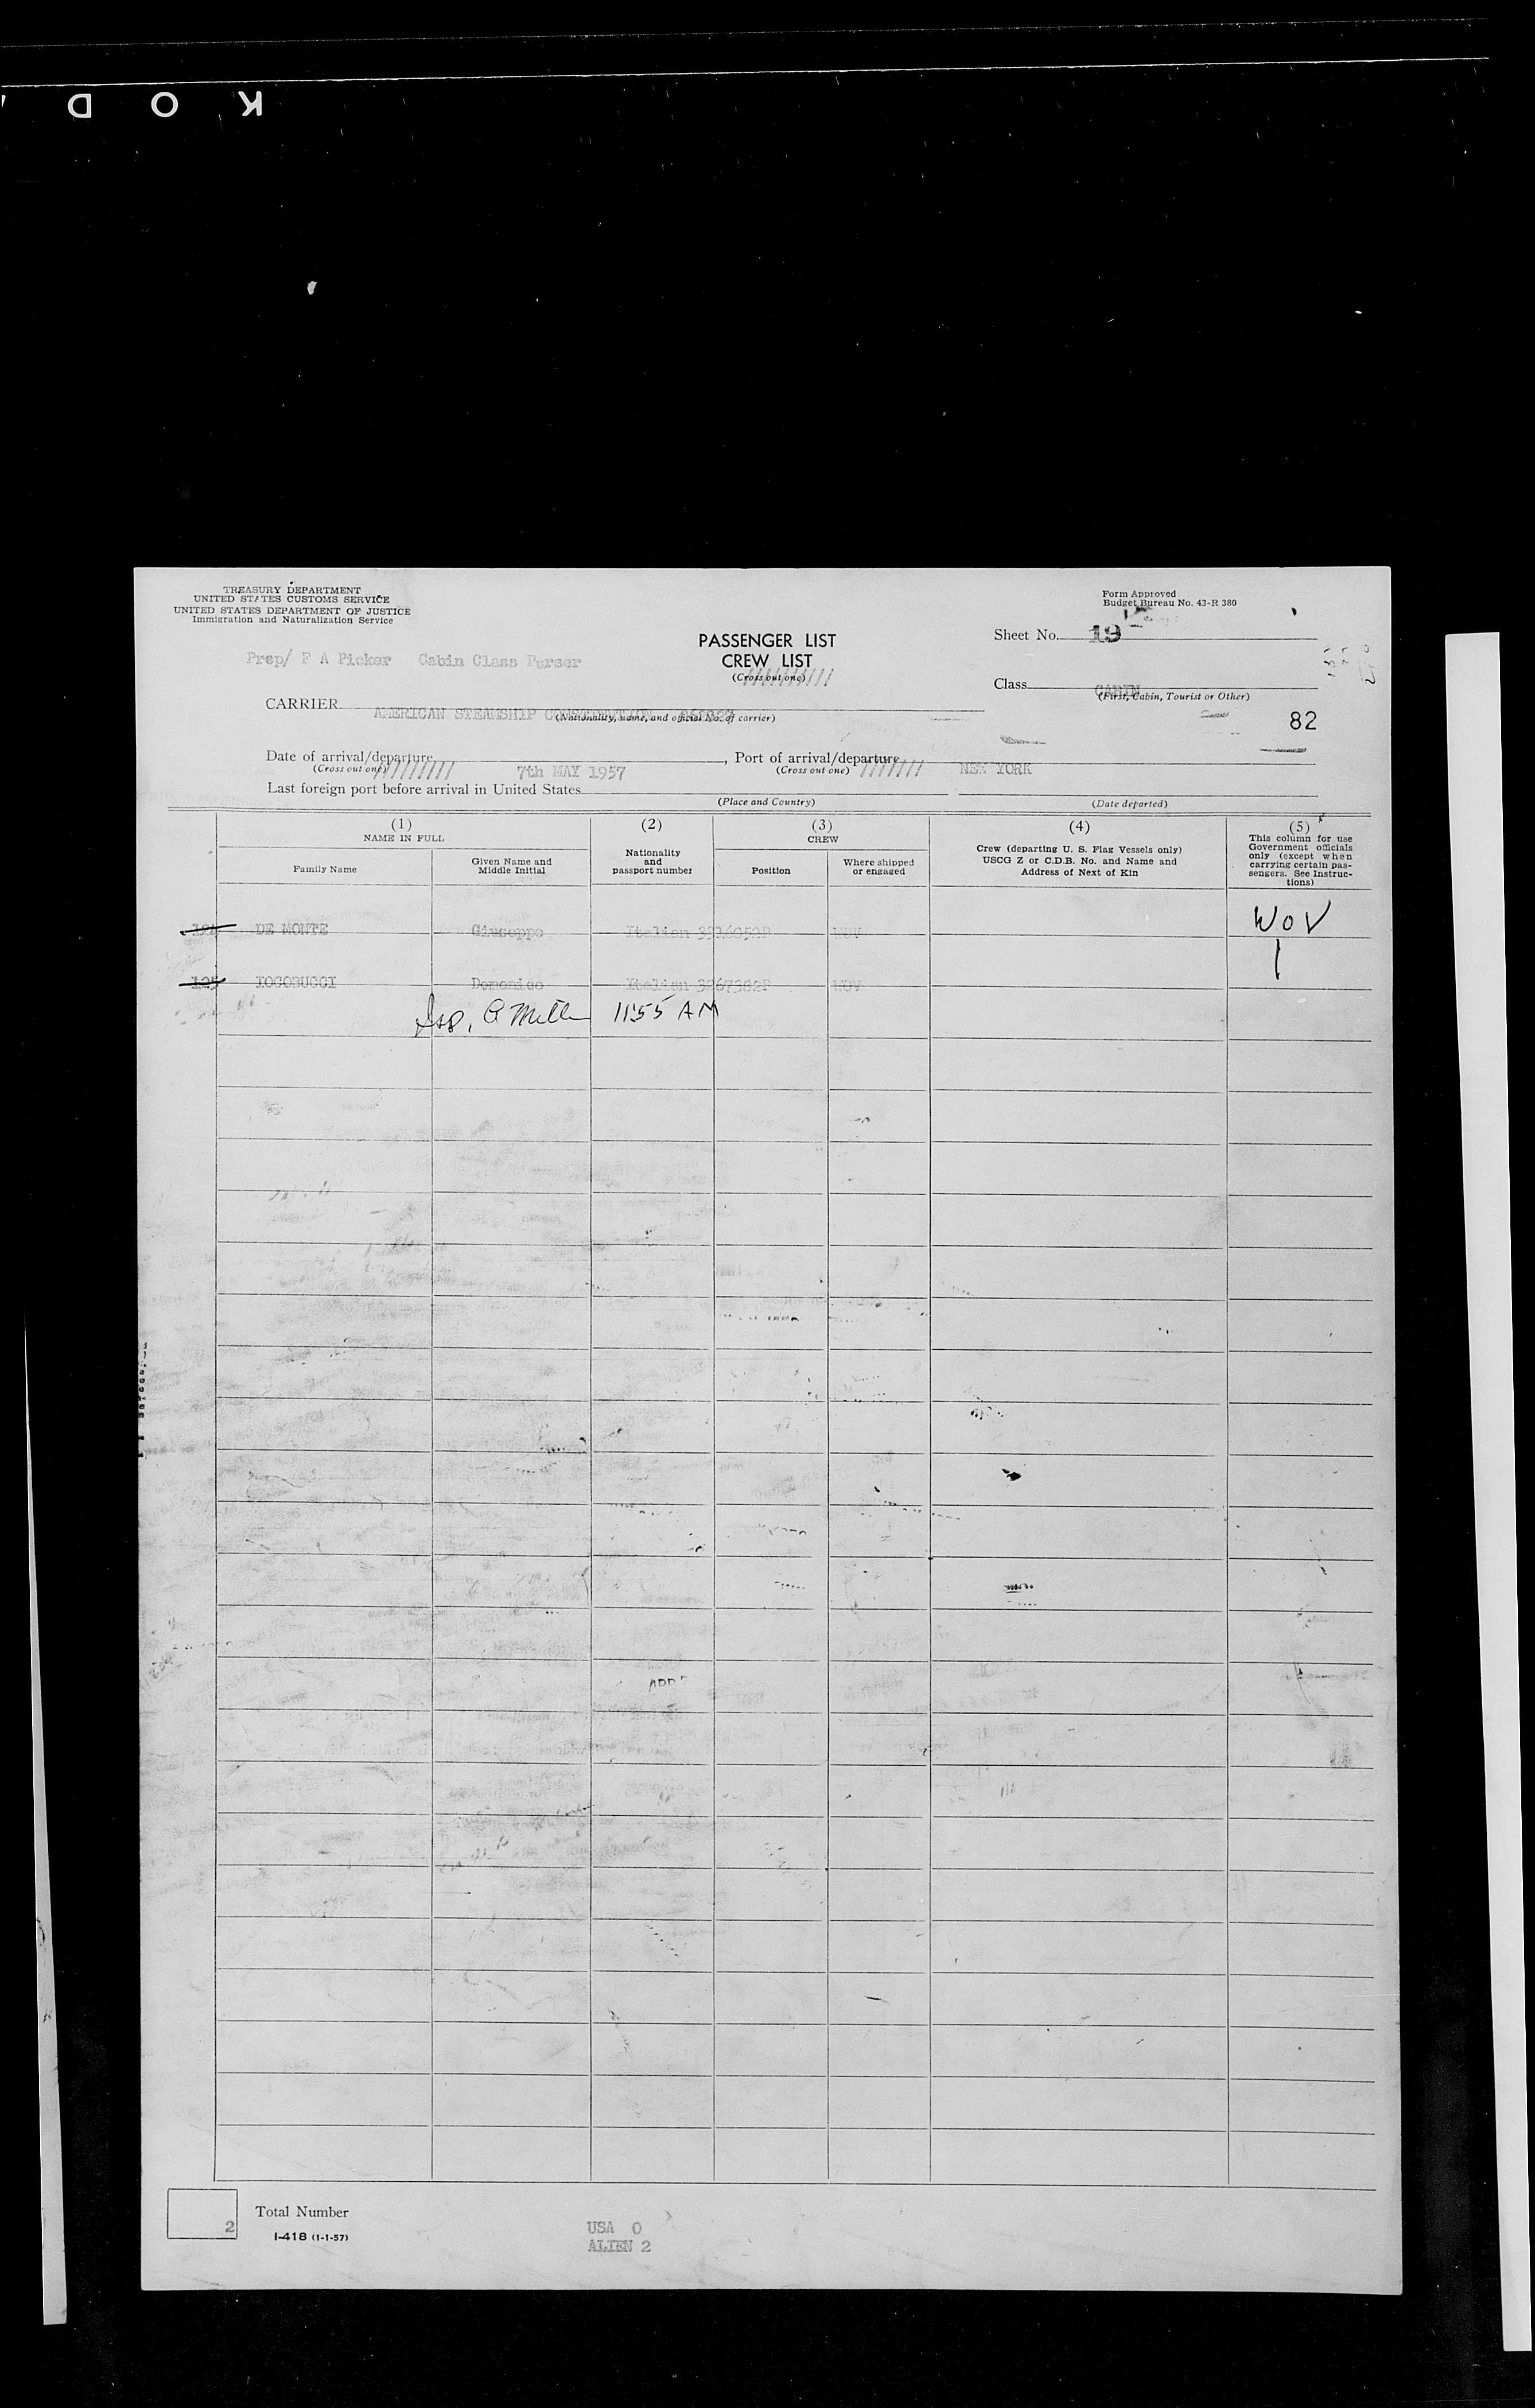 K O D
TREASURY DEPARTMENT
UNITED STATES CUSTOMS SERVICE
UNITED STATES DEPARTMENT OF JUSTICE
Immigration and Naturalization Service
Form Approved
Budget Bureau No. 43-R 380
PASSENGER LIST
CREW LIST
(Cross out one)
Sheet No. 19
Prep/ F A Picker Cabin Class Purser
Class CABIN
(First, Cabin, Tourist or Other)
CARRIER AMERICAN STEAMSHIP
(Nationality, name, and official No. of carrier)
82
Date of arrival/departure 7th MAY 1957, Port of arrival/departure NEW YORK
(Cross out one) (Cross out one)
Last foreign port before arrival in United States
(Place and Country) (Date departed)
(1)
NAME IN FULL
Family Name
Given Name and
Middle Initial
(2)
Nationality
and
passport number
(3)
CREW
Position
Where shipped
or engaged
(4)
Crew (departing U. S. Flag Vessels only)
USCG Z or C.D.B. No. and Name and
Address of Next of Kin
(5)
This column for use
Government officials
only (except when
carrying certain pas-
sengers. See Instruc-
tions)
DE MONTE Giuseppe Italian WOV WOV
125 IOCOBUCCI Domenico Italian WOV
11:55 AM
2 Total Number
I-418 (1-1-57)
USA 0
ALIEN 2